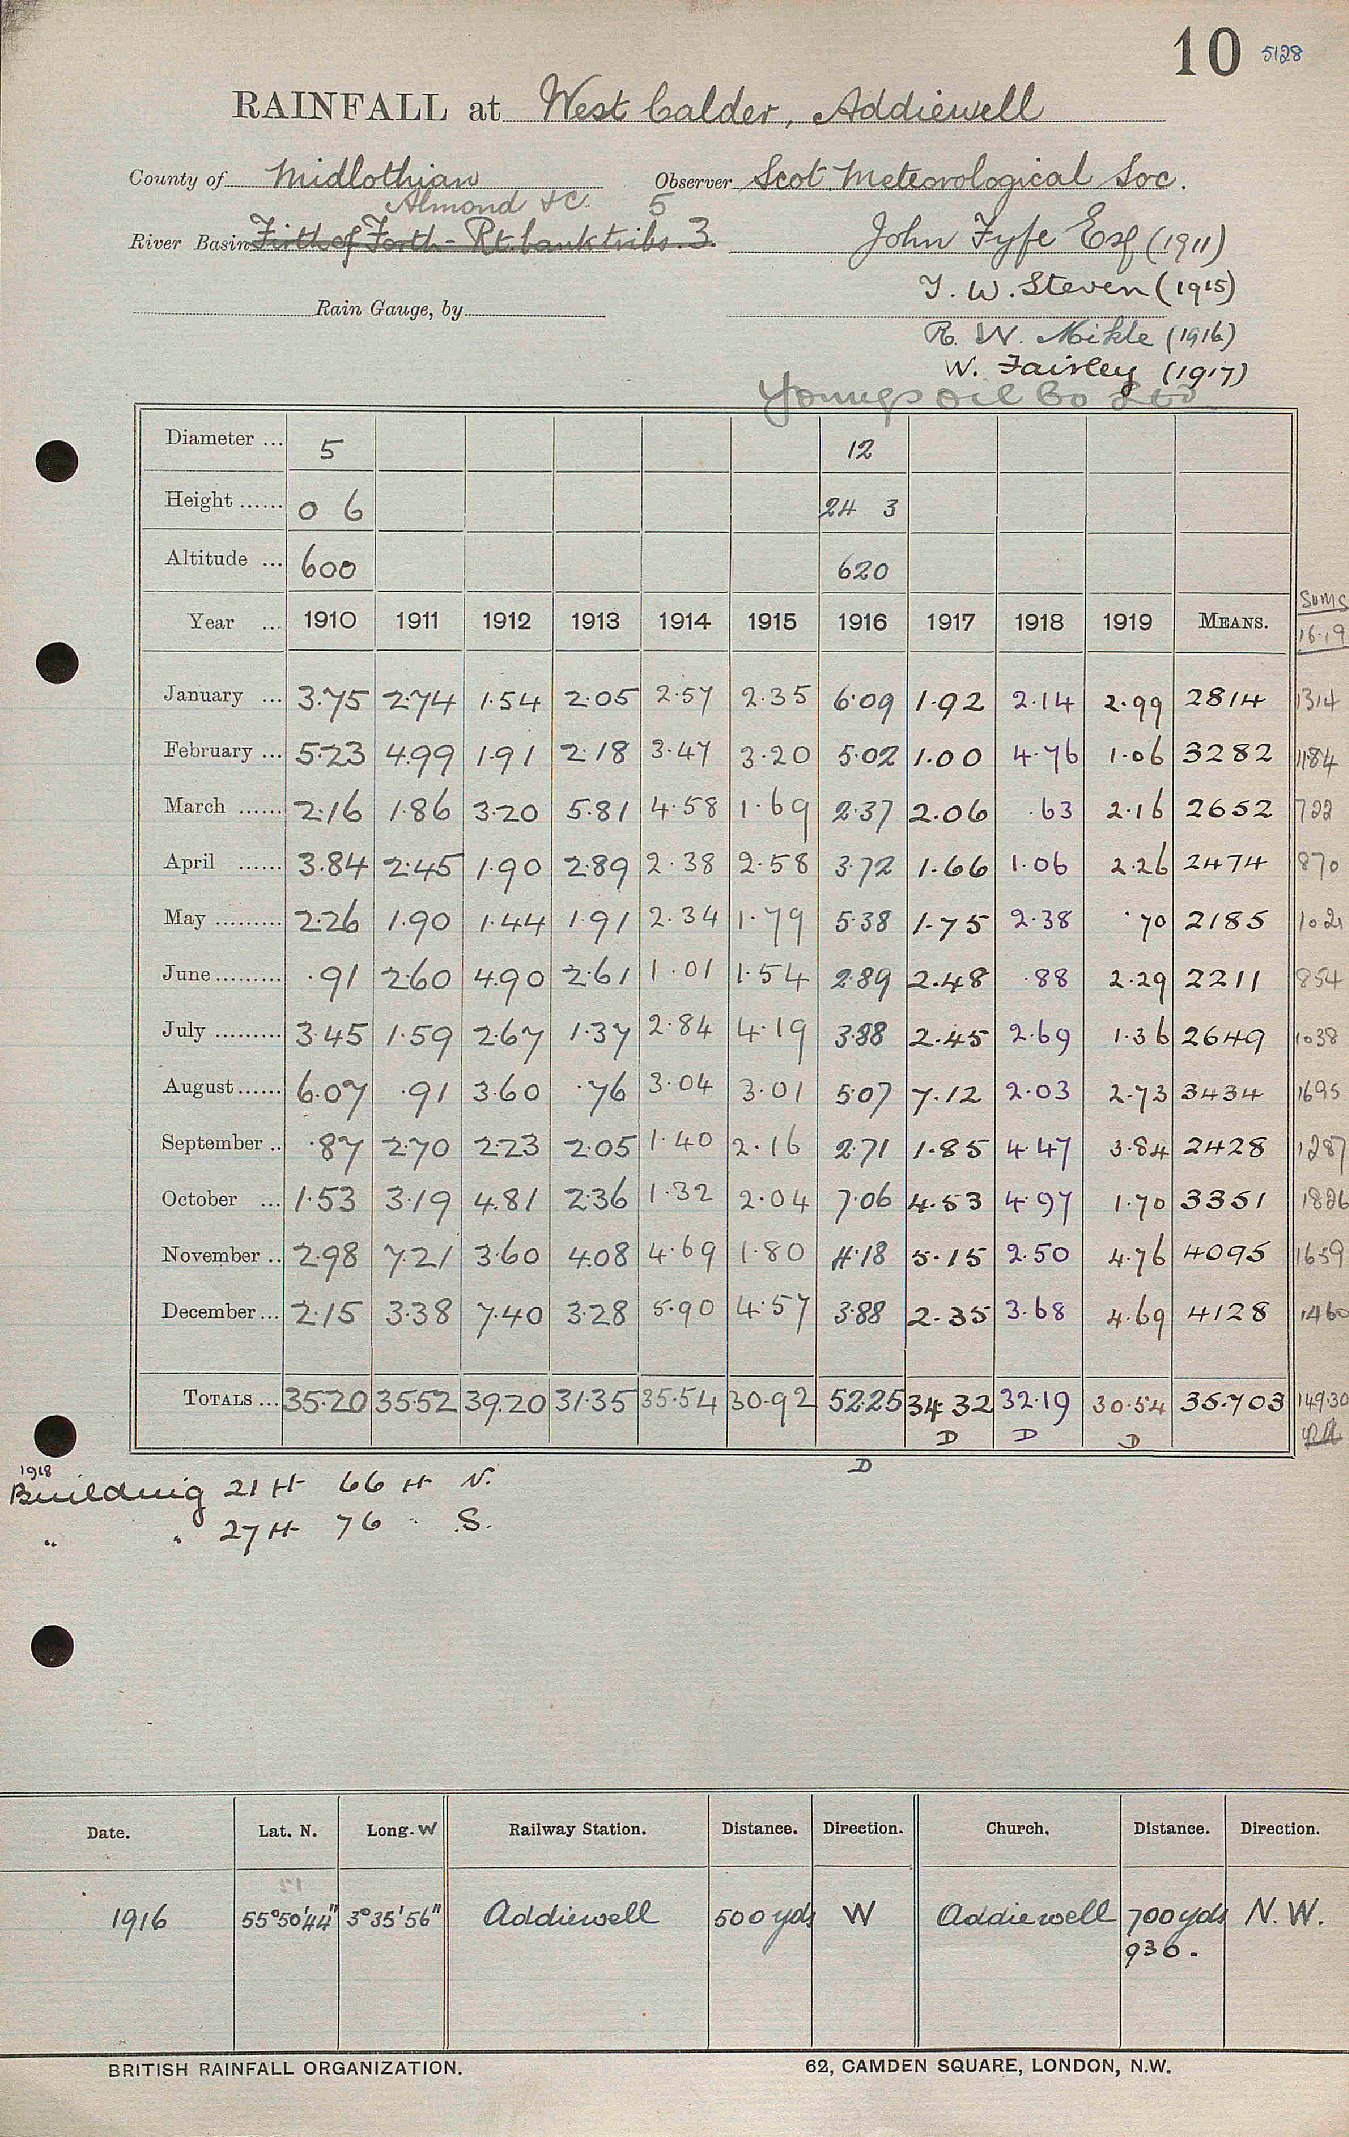 10 5128
RAINFALL at West Calder, Addiewell
County of Midlothian Observer Scot. Meteorological Soc.
Almond &c. 5
River Basin Firth of Forth - Rt. bank tribs. 3. John Fyfe Esq (1911)
T. W. Steven (1915)
Rain Gauge, by
R. W. Meikle (1916)
W. Fairley (1917)
Youngs Oil Co Ltd
Diameter ... 5 12
Height ...... 0 6 24 3
Altitude ... 600 620
Sums
Year ... 1910 1911 1912 1913 1914 1915 1916 1917 1918 1919 MEANS. 16-19
January ... 3.75 2.74 1.54 2.05 2.57 2.35 6.09 1.92 2.14 2.99 2814 1314
February ... 5.23 4.99 1.91 2.18 3.47 3.20 5.02 1.00 4.76 1.06 3282 1184
March ...... 2.16 1.86 3.20 5.81 4.58 1.69 2.37 2.06 .63 2.16 2652 722
April ...... 3.84 2.45 1.90 2.89 2.38 2.58 3.72 1.66 1.06 2.26 2474 870
May ......... 2.26 1.90 1.44 1.91 2.34 1.79 5.38 1.75 2.38 .70 2185 1021
June ......... .91 2.60 4.90 2.61 1.01 1.54 2.89 2.48 .88 2.29 2211 854
July ......... 3.45 1.59 2.67 1.37 2.84 4.19 3.88 2.45 2.69 1.36 2649 1038
August ...... 6.07 .91 3.60 .76 3.04 3.01 5.07 7.12 2.03 2.73 3434 1695
September .. .87 2.70 2.23 2.05 1.40 2.16 2.71 1.85 4.47 3.84 2428 1287
October ... 1.53 3.19 4.81 2.36 1.32 2.04 7.06 4.53 4.97 1.70 3351 1826
November .. 2.98 7.21 3.60 4.08 4.69 1.80 4.18 5.15 2.50 4.76 4095 1659
December ... 2.15 3.38 7.40 3.28 5.90 4.57 3.88 2.35 3.68 4.69 4128 1460
TOTALS ... 35.20 35.52 39.20 31.35 35.54 30.92 52.25 34.32 32.19 30.54 35.703 149.30
D D D
D
1918
Building 21 ft 66 ft N.
" " 27 ft 76 " S.
Date. Lat. N. Long. W Railway Station. Distance. Direction. Church. Distance. Direction.
1916 55°50'44" 3°35'56" Addiewell 500 yds W Addiewell 700 yds N.W.
936.
BRITISH RAINFALL ORGANIZATION. 62, CAMDEN SQUARE, LONDON, N.W.